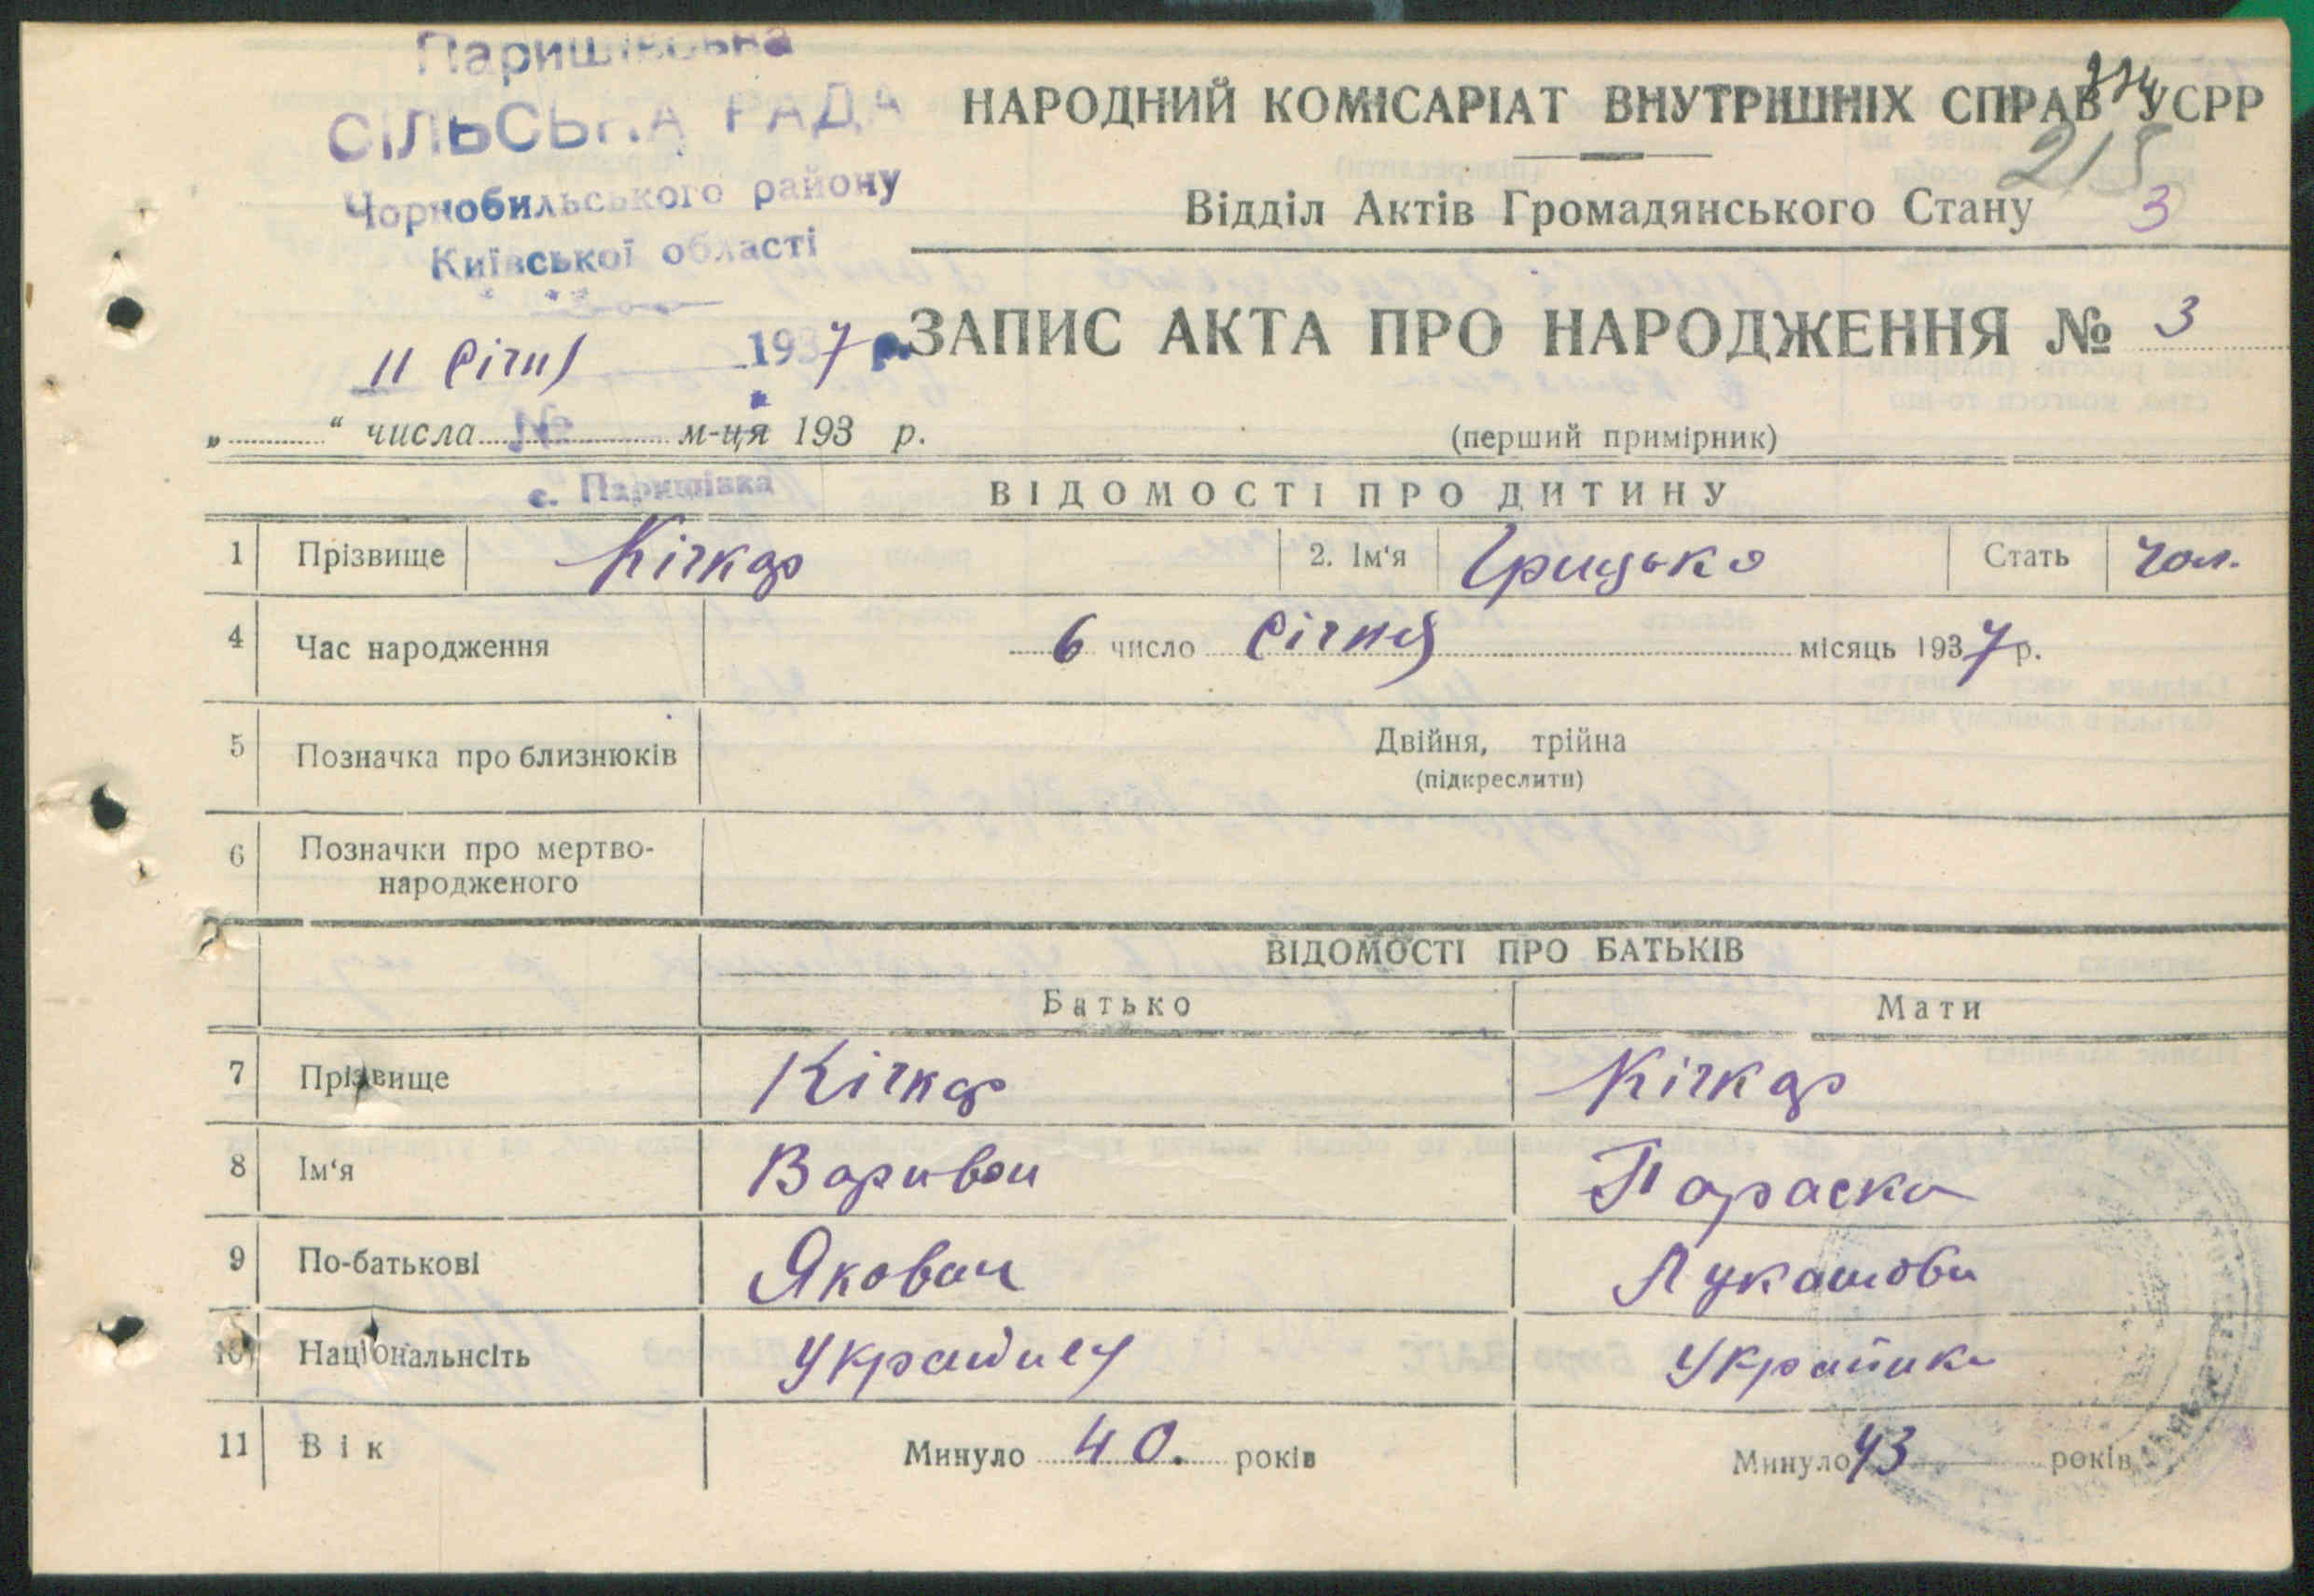 Паришівська
СІЛЬСЬКА РАДА
Чорнобильського району
Київської області
11 Січня 1937 р.
№
с. Паришівка
НАРОДНИЙ КОМІСАРІАТ ВНУТРІШНІХ СПРАВ УСРР
215
Відділ Актів Громадянського Стану 3
ЗАПИС АКТА ПРО НАРОДЖЕННЯ № 3
„ “ числа м-ця 193 р.
(перший примірник)
ВІДОМОСТІ ПРО ДИТИНУ
1 Прізвище Кічкар 2. Ім‘я Грицько Стать чол.
4 Час народження 6 число Січня місяць 1937 р.
5 Позначка про близнюків Двійня, трійна
(підкреслити)
6 Позначки про мертво-
народженого
ВІДОМОСТІ ПРО БАТЬКІВ
Батько Мати
7 Прізвище Кічкар Кічкар
8 Ім‘я Варивон Параска
9 По-батькові Якович Лукашова
10 Націонвльнсіть Українец Українка
11 Вік Минуло 40. років Минуло 43 років